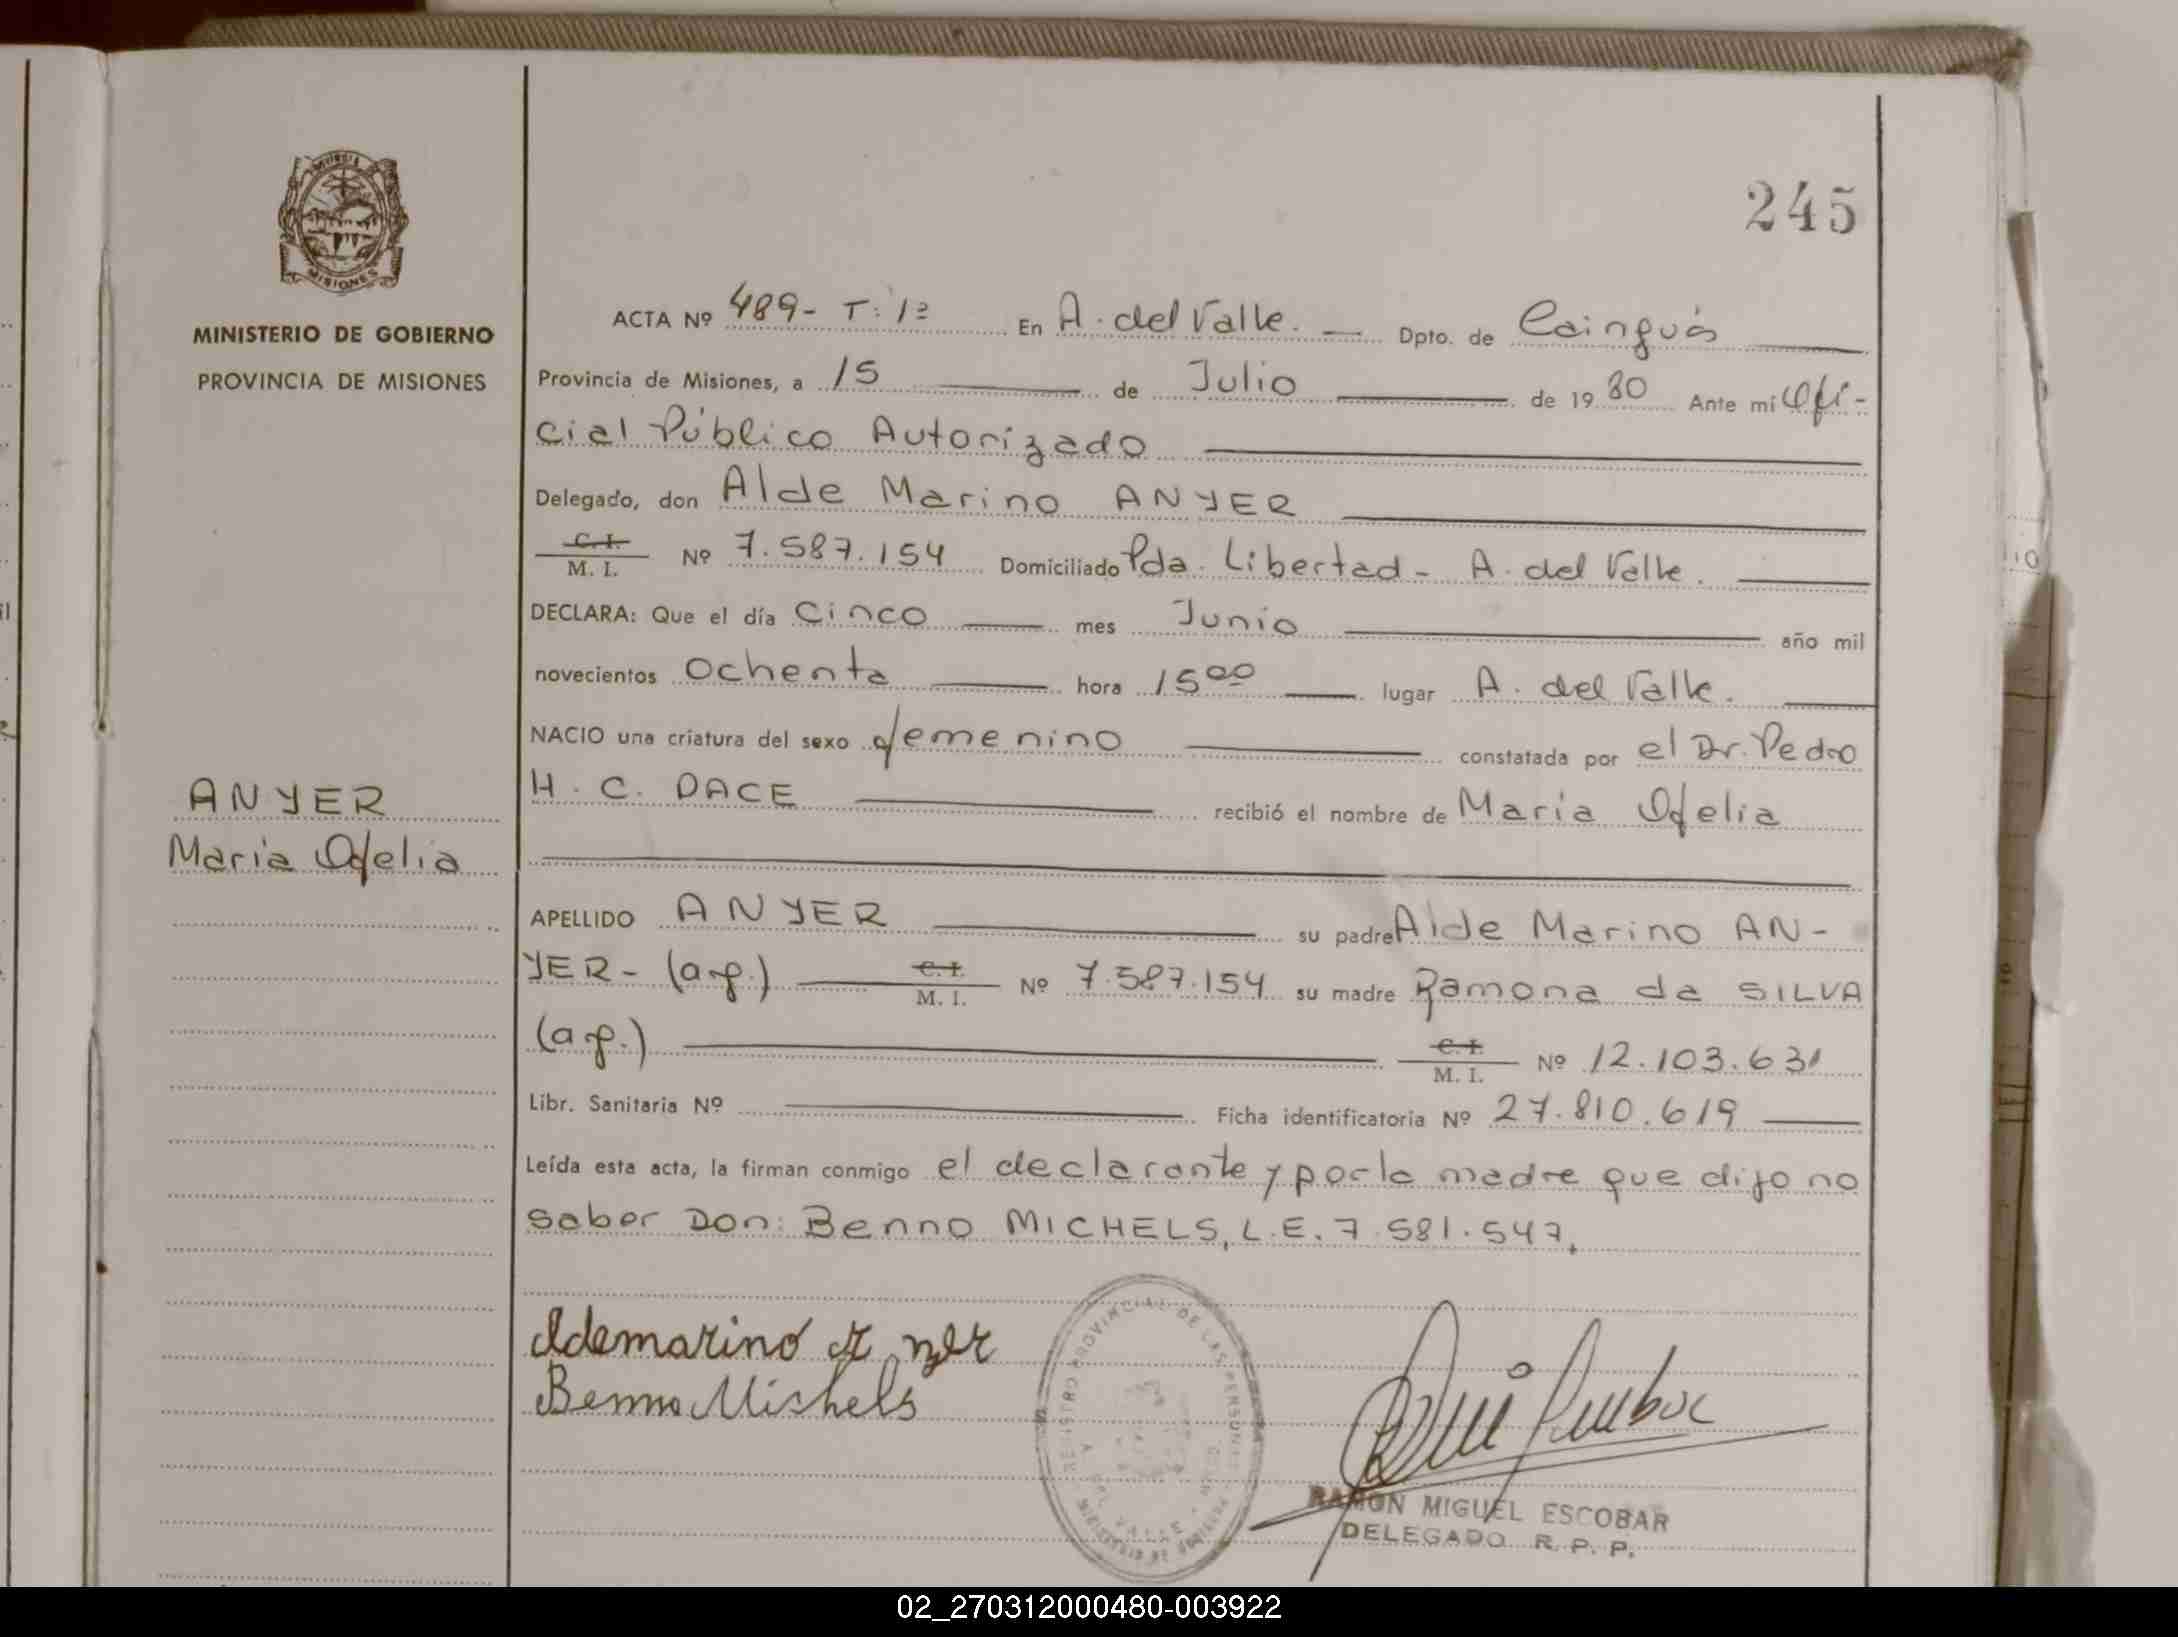 245
MINISTERIO DE GOBIERNO
PROVINCIA DE MISIONES
ACTA Nº 489- T: 1º En A. del Valle. Dpto. de Cainguás
Provincia de Misiones, a 15 de Julio de 1980 Ante mi Ofi-
cial Público Autorizado
Delegado, don Alde Marino ANYER
C. I. M. I. Nº 7.587.154 Domiciliado Pda. Libertad - A. del Valle.
DECLARA: Que el día Cinco mes Junio año mil
novecientos Ochenta hora 15 00 lugar A. del Valle.
NACIO una criatura del sexo femenino constatada por el Dr. Pedro
H. C. DACE recibió el nombre de María Ofelia
ANYER
María Ofelia
APELLIDO ANYER su padre Alde Marino AN-
YER- (ag.) C. I. M. I. Nº 7.587.154 su madre Ramona da SILVA
(ag.) C. I. M. I. Nº 12.103.631
Libr. Sanitaria Nº Ficha identificatoria Nº 27.810.619
Leída esta acta, la firman conmigo el declarante y por la madre que dijo no
saber Don: Benno MICHELS, L.E. 7.581.547.
Benno Michels
REGISTRO PROVINCIAL DE LAS PERSONAS
RAMON MIGUEL ESCOBAR
DELEGADO R. P. P.
02_270312000480-003922